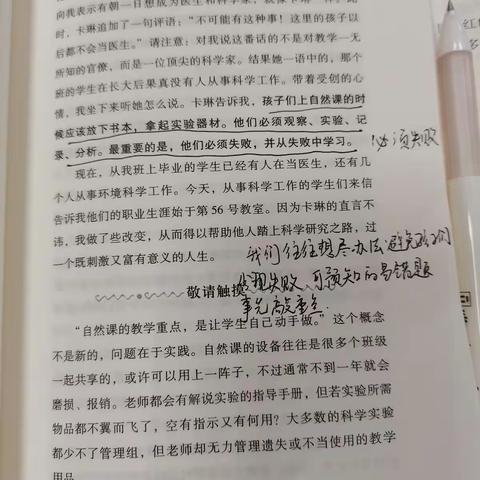 向我表示有朝一日想成为医生和科学家
时，卡琳追加了一句评语：“不可能有这种事！这里的孩子以
后都不会当医生。”请注意：对我说这番话的不是对教学一无
所知的官僚，而是一位顶尖的科学家。结果她一语中的，那个
班的学生在长大后果真没有人从事科学工作。带着受创的心
情，我坐下来听她怎么说。卡琳告诉我，孩子们上自然课的时
候应该放下书本，拿起实验器材。他们必须观察、实验、记
录、分析。最重要的是，他们必须失败，并从失败中学习。
必须失败
现在，从我班上毕业的学生已经有人在当医生，还有几
个人从事环境科学工作。今天，从事科学工作的学生们来信
告诉我他们的职业生涯始于第 56 号教室。因为卡琳的直言不
讳，我做了些改变，从而得以帮助他人踏上科学研究之路，过
一个既刺激又富有意义的人生。
我们往往想尽办法避免孩子们
出现失败、可预知的易错题
事先高亮
敬请触摸
“自然课的教学重点，是让学生自己动手做。”这个概念
不是新的，问题在于实践。自然课的设备往往是很多个班级
一起共享的，或许可以用上一阵子，不过通常不到一年就会
磨损、报销。老师都会有解说实验的指导手册，但若实验所需
物品都不翼而飞了，空有指示又有何用？大多数的科学实验
都少不了管理组，但老师却无力管理遗失或不当使用的教学
用品